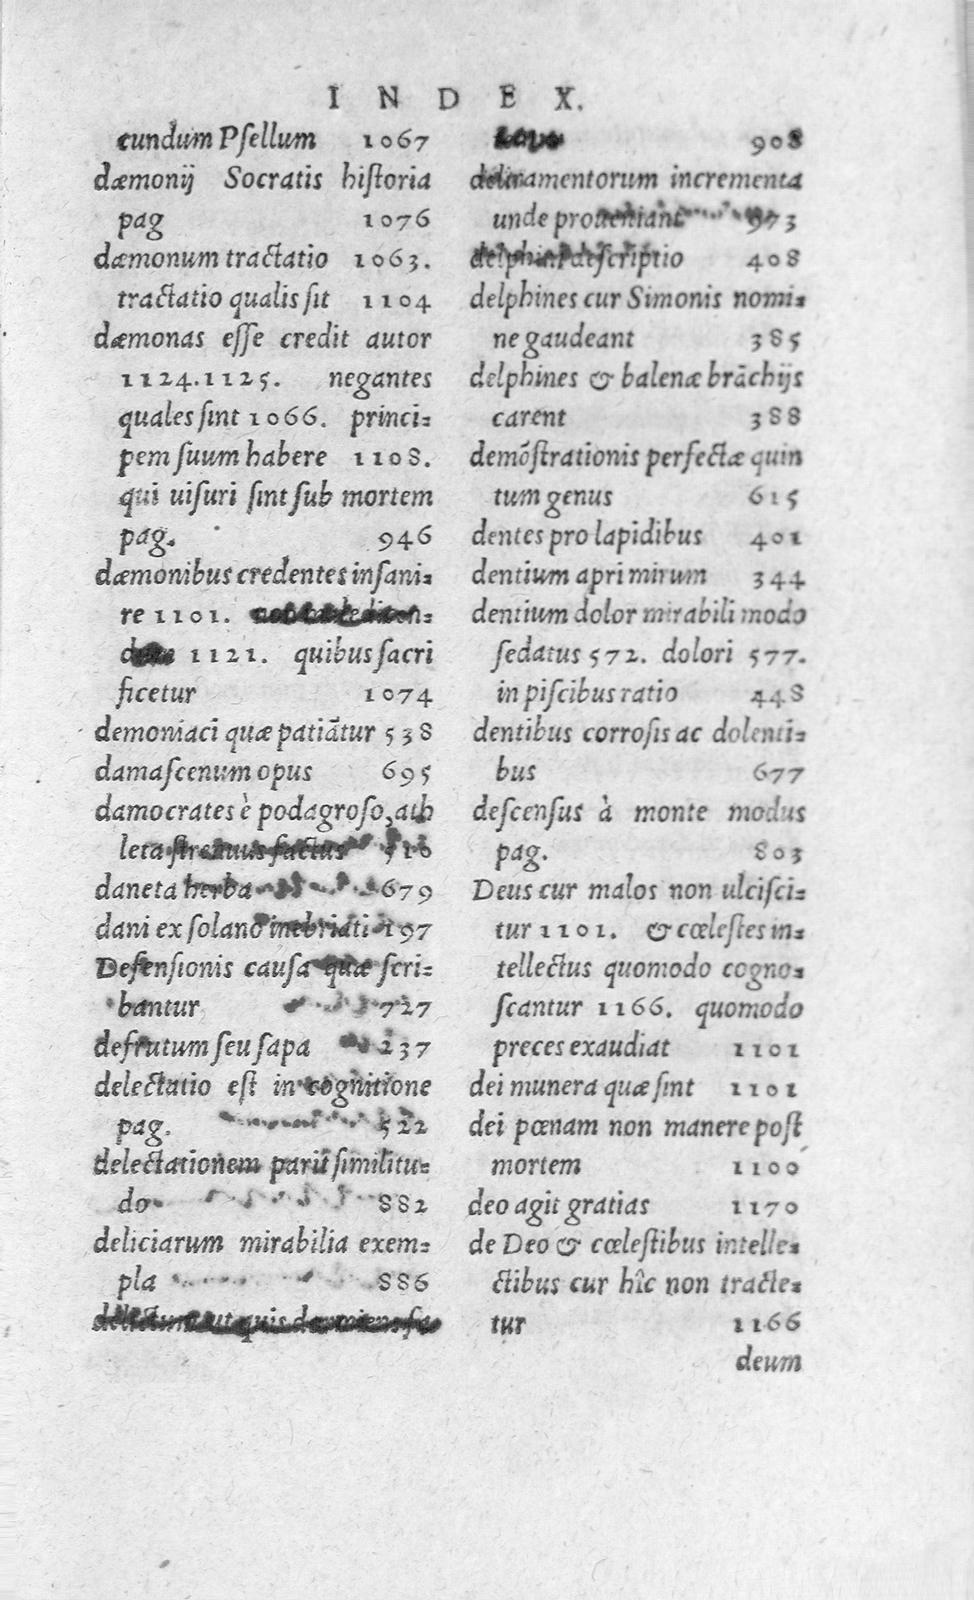 INDEX.
cundum Pſellum 1067
dæmonij Socratis hiſtoria
pag 1076
dæmonum tractatio 1063.
tractatio qualis ſit 1104
dæmonas eſſe credit autor
1124.1125. negantes
quales ſint 1066. princi=
pem ſuum habere 1108.
qui uiſuri ſint ſub mortem
pag. 946
dæmonibus credentes inſani=
re 1101.
1121. quibus ſacri
ficetur 1074
demoniaci quæ patiātur 538
damaſcenum opus 695
damocrates è podagroſo, ath
leta ſtrenuus factus
daneta herba 679
dani ex ſolano inebriati 197
Defenſionis cauſa quæ ſcri=
bantur 727
defrutum ſeu ſapa 237
delectatio eſt in cognitione
pag. 522
delectationem parit ſimilitu=
do 882
deliciarum mirabilia exem=
pla 886
ut quis
908
deliramentorum incrementa
unde proueniant 973
delphini deſcriptio 408
delphines cur Simonis nomi=
ne gaudeant 385
delphines & balenæ brāchijs
carent 388
demōſtrationis perfectæ quin
tum genus 615
dentes pro lapidibus 401
dentium apri mirum 344
dentium dolor mirabili modo
ſedatus 572. dolori 577.
in piſcibus ratio 448
dentibus corroſis ac dolenti=
bus 677
deſcenſus à monte modus
pag. 803
Deus cur malos non ulciſci=
tur 1101. & cœleſtes in=
tellectus quomodo cogno=
ſcantur 1166. quomodo
preces exaudiat 1101
dei munera quæ ſint 1101
dei pœnam non manere poſt
mortem 1100
deo agit gratias 1170
de Deo & cœleſtibus intelle=
ctibus cur hîc non tracte=
tur 1166
deum